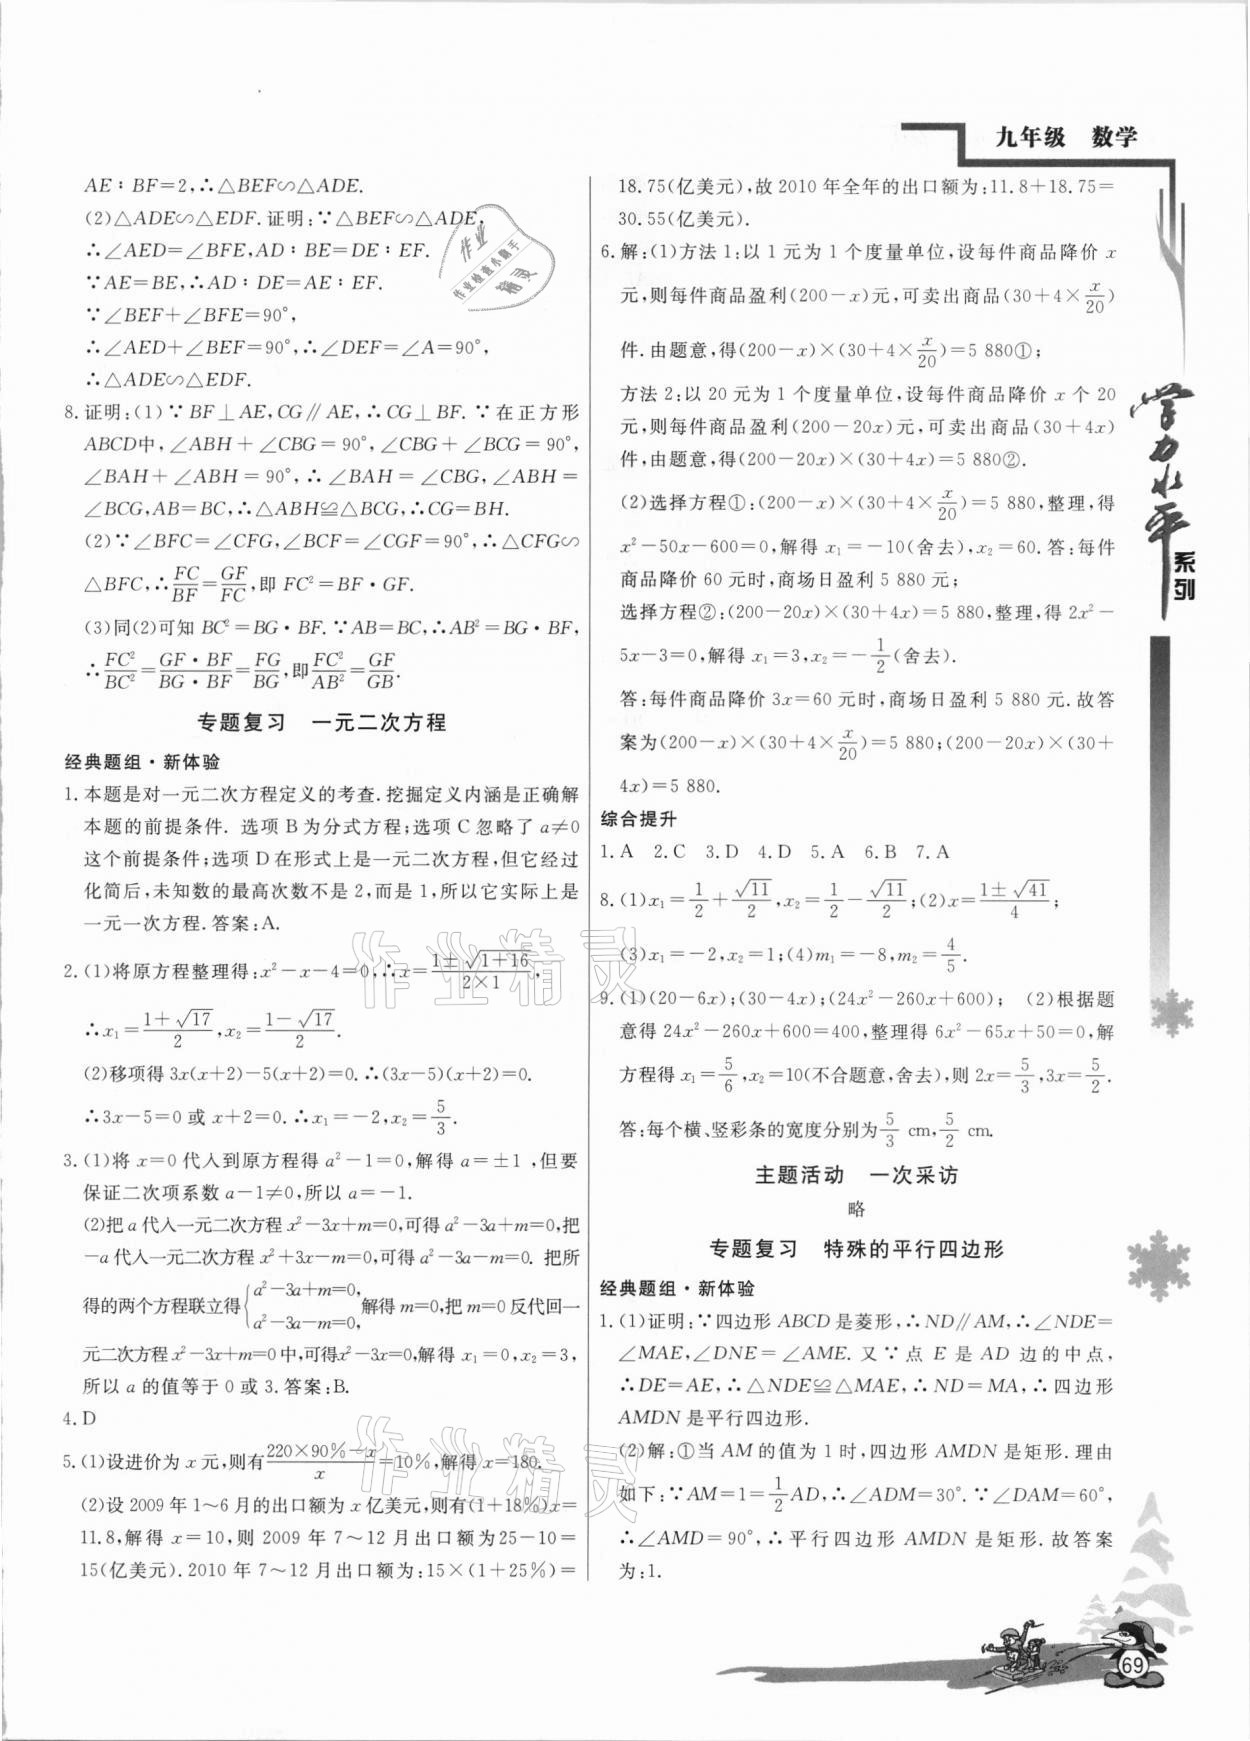 九年级　数学
AE∶BF=2,∴△BEF∽△ADE.
(2)△ADE∽△EDF.证明:∵△BEF∽△ADE,
∴∠AED=∠BFE,AD∶BE=DE∶EF.
∵AE=BE,∴AD∶DE=AE∶EF.
∵∠BEF+∠BFE=90°,
∴∠AED+∠BEF=90°,∴∠DEF=∠A=90°,
∴△ADE∽△EDF.
8.证明:(1)∵BF⊥AE,CG∥AE,∴CG⊥BF.∵在正方形
ABCD中,∠ABH+∠CBG=90°,∠CBG+∠BCG=90°,
∠BAH+∠ABH=90°,∴∠BAH=∠CBG,∠ABH=
∠BCG,AB=BC,∴△ABH≌△BCG,∴CG=BH.
(2)∵∠BFC=∠CFG,∠BCF=∠CGF=90°,∴△CFG∽
△BFC,∴FC/BF=GF/FC,即 FC²=BF·GF.
(3)同(2)可知 BC²=BG·BF.∵AB=BC,∴AB²=BG·BF,
∴FC²/BC²=GF·BF/BG·BF=FG/BG,即FC²/AB²=GF/GB.
专题复习　一元二次方程
经典题组·新体验
1.本题是对一元二次方程定义的考查.挖掘定义内涵是正确解
本题的前提条件. 选项 B 为分式方程;选项 C 忽略了 a≠0
这个前提条件;选项 D 在形式上是一元二次方程,但它经过
化简后,未知数的最高次数不是 2,而是 1,所以它实际上是
一元一次方程.答案:A.
2.(1)将原方程整理得:x²-x-4=0,∴x=(1±√(1+16))/(2×1),
∴x₁=(1+√17)/2,x₂=(1-√17)/2.
(2)移项得 3x(x+2)-5(x+2)=0.∴(3x-5)(x+2)=0.
∴3x-5=0 或 x+2=0.∴x₁=-2,x₂=5/3.
3.(1)将 x=0 代入到原方程得 a²-1=0,解得 a=±1,但要
保证二次项系数 a-1≠0,所以 a=-1.
(2)把 a 代入一元二次方程 x²-3x+m=0,可得 a²-3a+m=0,把
-a 代入一元二次方程 x²+3x-m=0,可得 a²-3a-m=0.把所
得的两个方程联立得{a²-3a+m=0, a²-3a-m=0,解得 m=0,把 m=0 反代回一
元二次方程 x²-3x+m=0 中,可得x²-3x=0,解得 x₁=0,x₂=3,
所以 a 的值等于 0 或 3.答案:B.
4.D
5.(1)设进价为 x 元,则有(220×90%-x)/x=10%,解得 x=180.
(2)设 2009 年 1～6 月的出口额为 x 亿美元,则有(1+18%)x=
11.8,解得 x=10,则 2009 年 7～12 月出口额为25-10=
15(亿美元).2010 年 7～12 月出口额为:15×(1+25%)=
18.75(亿美元),故 2010 年全年的出口额为:11.8+18.75=
30.55(亿美元).
6.解:(1)方法 1:以 1 元为 1 个度量单位,设每件商品降价 x
元,则每件商品盈利(200-x)元,可卖出商品(30+4×x/20)
件.由题意,得(200-x)×(30+4×x/20)=5 880①;
方法 2:以 20 元为 1 个度量单位,设每件商品降价 x 个 20
元,则每件商品盈利(200-20x)元,可卖出商品(30+4x)
件,由题意,得(200-20x)×(30+4x)=5 880②.
(2)选择方程①:(200-x)×(30+4×x/20)=5 880,整理,得
x²-50x-600=0,解得 x₁=-10(舍去),x₂=60.答:每件
商品降价 60 元时,商场日盈利 5 880 元;
选择方程②:(200-20x)×(30+4x)=5 880,整理,得 2x²-
5x-3=0,解得 x₁=3,x₂=-1/2(舍去).
答:每件商品降价 3x=60 元时,商场日盈利 5 880 元.故答
案为(200-x)×(30+4×x/20)=5 880;(200-20x)×(30+
4x)=5 880.
综合提升
1.A　2.C　3.D　4.D　5.A　6.B　7.A
8.(1)x₁=1/2+√11/2,x₂=1/2-√11/2;(2)x=(1±√41)/4;
(3)x₁=-2,x₂=1;(4)m₁=-8,m₂=4/5.
9.(1)(20-6x);(30-4x);(24x²-260x+600);　(2)根据题
意得 24x²-260x+600=400,整理得 6x²-65x+50=0,解
方程得 x₁=5/6,x₂=10(不合题意,舍去),则 2x=5/3,3x=5/2.
答:每个横、竖彩条的宽度分别为5/3 cm,5/2 cm.
主题活动　一次采访
略
专题复习　特殊的平行四边形
经典题组·新体验
1.(1)证明:∵四边形 ABCD 是菱形,∴ND∥AM,∴∠NDE=
∠MAE,∠DNE=∠AME.又∵点 E 是 AD 边的中点,
∴DE=AE,∴△NDE≌△MAE,∴ND=MA,∴四边形
AMDN 是平行四边形.
(2)解:①当 AM 的值为 1 时,四边形 AMDN 是矩形.理由
如下:∵AM=1=1/2AD,∴∠ADM=30°.∵∠DAM=60°,
∴∠AMD=90°,∴平行四边形 AMDN 是矩形.故答案
为:1.
学力水平
系列
69
作业
作业检查小助手
精灵
作业精灵
作业精灵